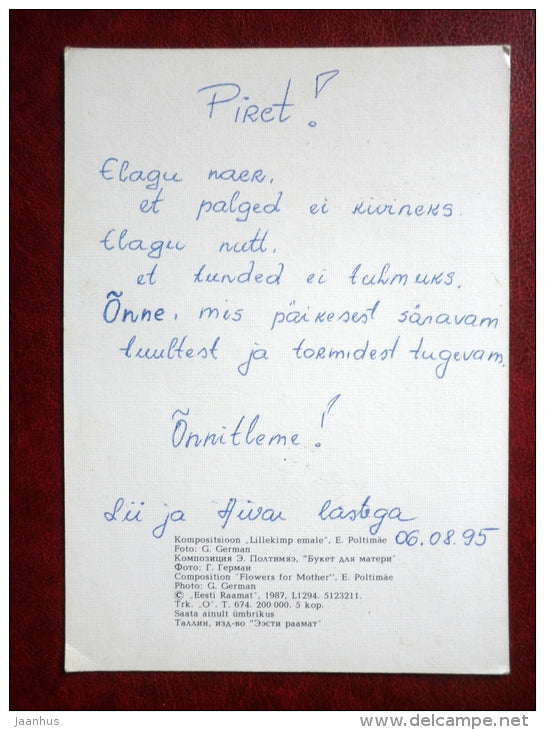 Piret!
Elagu naer,
et palged ei kivineks.
Elagu nutt,
et tunded ei tuhmuks.
Õnne, mis päikesest säravam
tuultest ja tormidest tugevam.
Õnnitleme!
Lii ja Aivar lastega
06.08.95
Kompositsioon „Lillekimp emale", E. Poltimäe
Foto: G. German
Композиция Э. Полтимяэ, "Букет для матери"
Фото: Г. Герман
Composition "Flowers for Mother", E. Poltimäe
Photo: G. German
© „Eesti Raamat", 1987, L1294. 5123211.
Trk. „O". T. 674. 200 000. 5 kop.
Saata ainult ümbrikus
Таллин, изд-во "Ээсти раамат"
jaanhus
www.delcampe.net